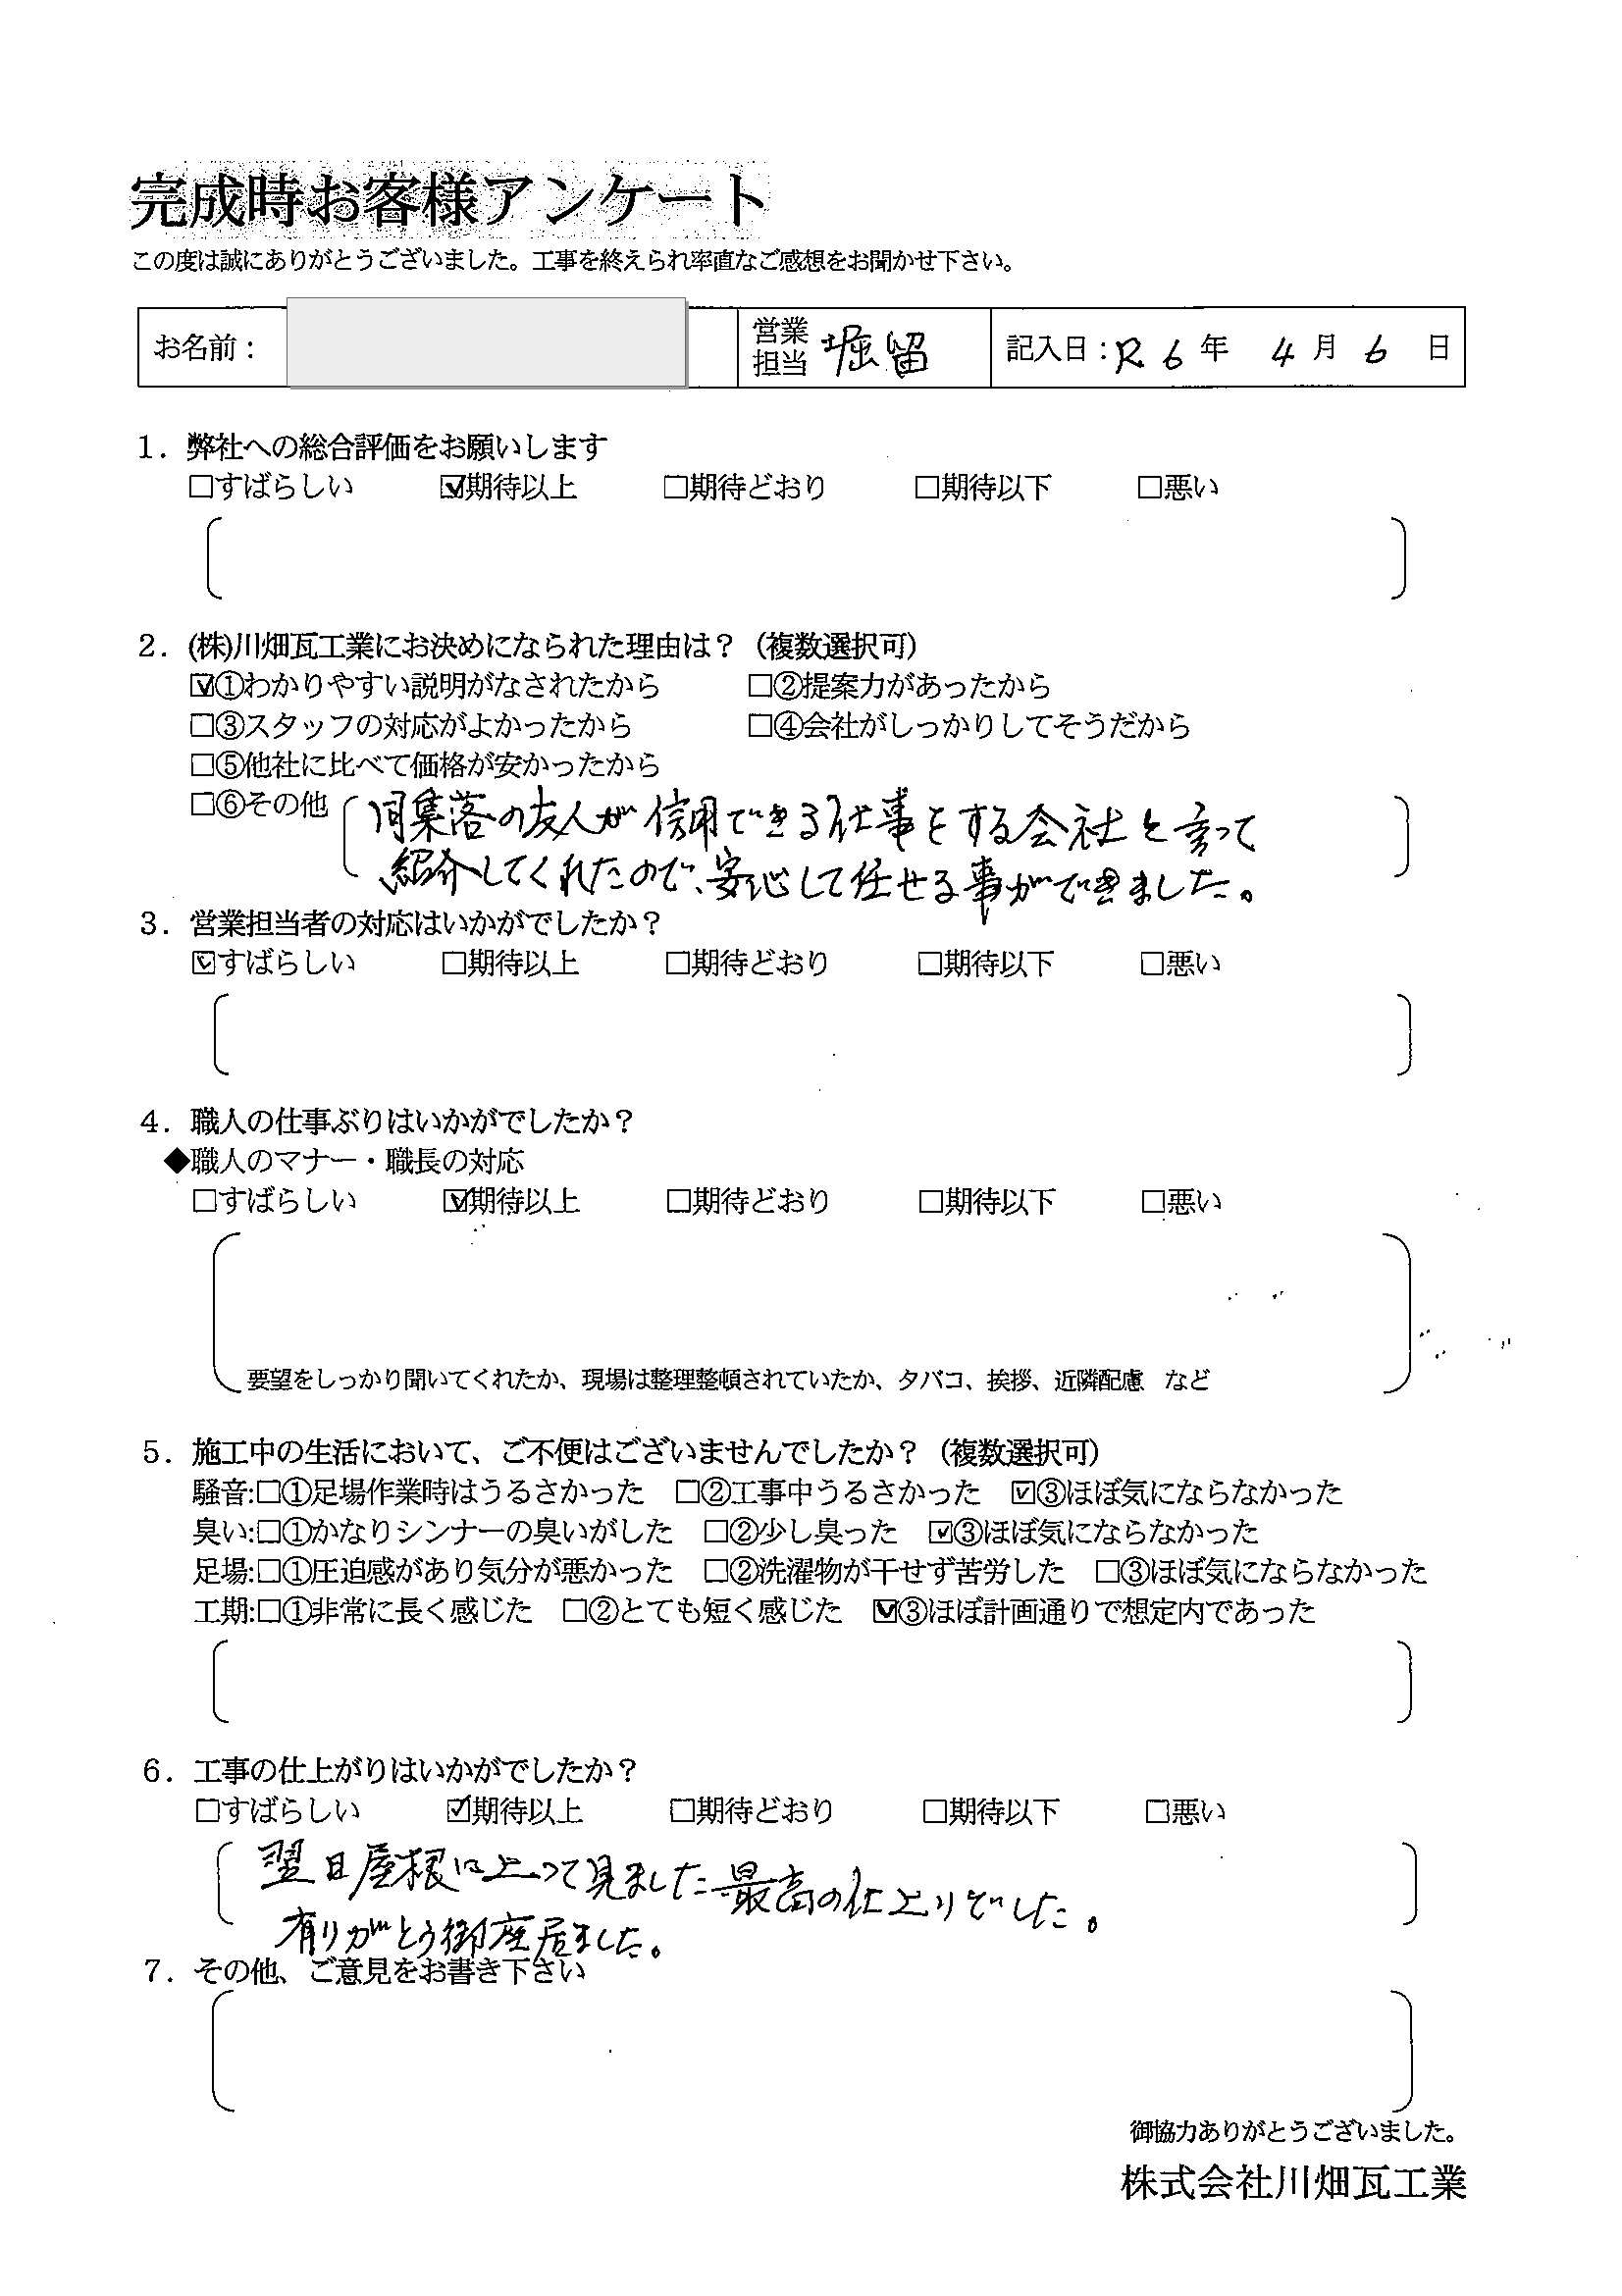 完成時お客様アンケート
この度は誠にありがとうございました。工事を終えられ率直なご感想をお聞かせ下さい。
お名前： 営業担当 堀留 記入日：R6年 4月6日
1．弊社への総合評価をお願いします
□すばらしい ☑期待以上 □期待どおり □期待以下 □悪い
2．(株)川畑瓦工業にお決めになられた理由は？（複数選択可）
☑①わかりやすい説明がなされたから □②提案力があったから
□③スタッフの対応がよかったから □④会社がしっかりしてそうだから
□⑤他社に比べて価格が安かったから
□⑥その他 同集落の友人が信用できる仕事をする会社と言って
紹介してくれたので、安心して任せる事ができました。
3．営業担当者の対応はいかがでしたか？
☑すばらしい □期待以上 □期待どおり □期待以下 □悪い
4．職人の仕事ぶりはいかがでしたか？
◆職人のマナー・職長の対応
□すばらしい ☑期待以上 □期待どおり □期待以下 □悪い
要望をしっかり聞いてくれたか、現場は整理整頓されていたか、タバコ、挨拶、近隣配慮 など
5．施工中の生活において、ご不便はございませんでしたか？（複数選択可）
騒音:□①足場作業時はうるさかった □②工事中うるさかった ☑③ほぼ気にならなかった
臭い:□①かなりシンナーの臭いがした □②少し臭った ☑③ほぼ気にならなかった
足場:□①圧迫感があり気分が悪かった □②洗濯物が干せず苦労した □③ほぼ気にならなかった
工期:□①非常に長く感じた □②とても短く感じた ☑③ほぼ計画通りで想定内であった
6．工事の仕上がりはいかがでしたか？
□すばらしい ☑期待以上 □期待どおり □期待以下 □悪い
翌日屋根に上って見ました最高の仕上りでした。
有りがとう御座居ました。
7．その他、ご意見をお書き下さい
御協力ありがとうございました。
株式会社川畑瓦工業